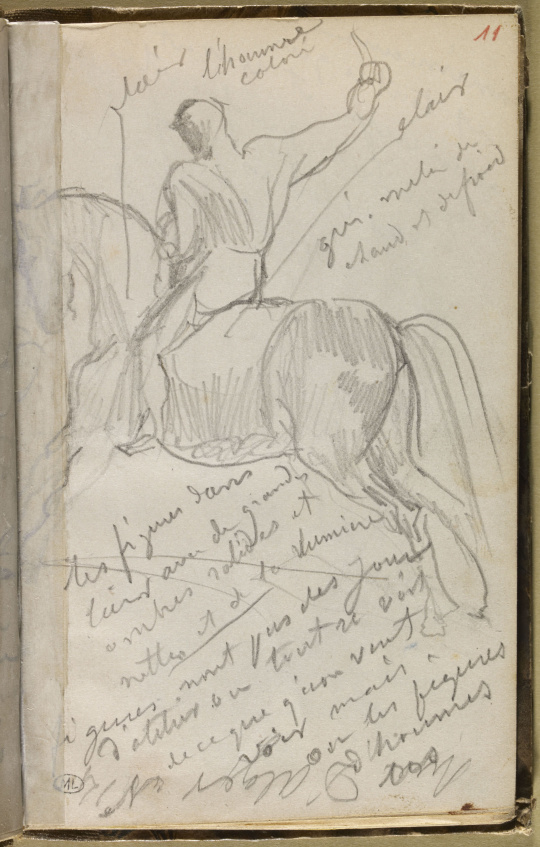 11
clair
l'homme
coloré
clair
gris. mêlé de
chaud et de froid
les figures dans
l'air avec de grandes
ombres solides et
nettes et de la lumière
figures sont pas des jours
d'atelier ou tout se voit
de ce que q'uon veut
voir mais
ou les figures
d'hommes
d'Alger